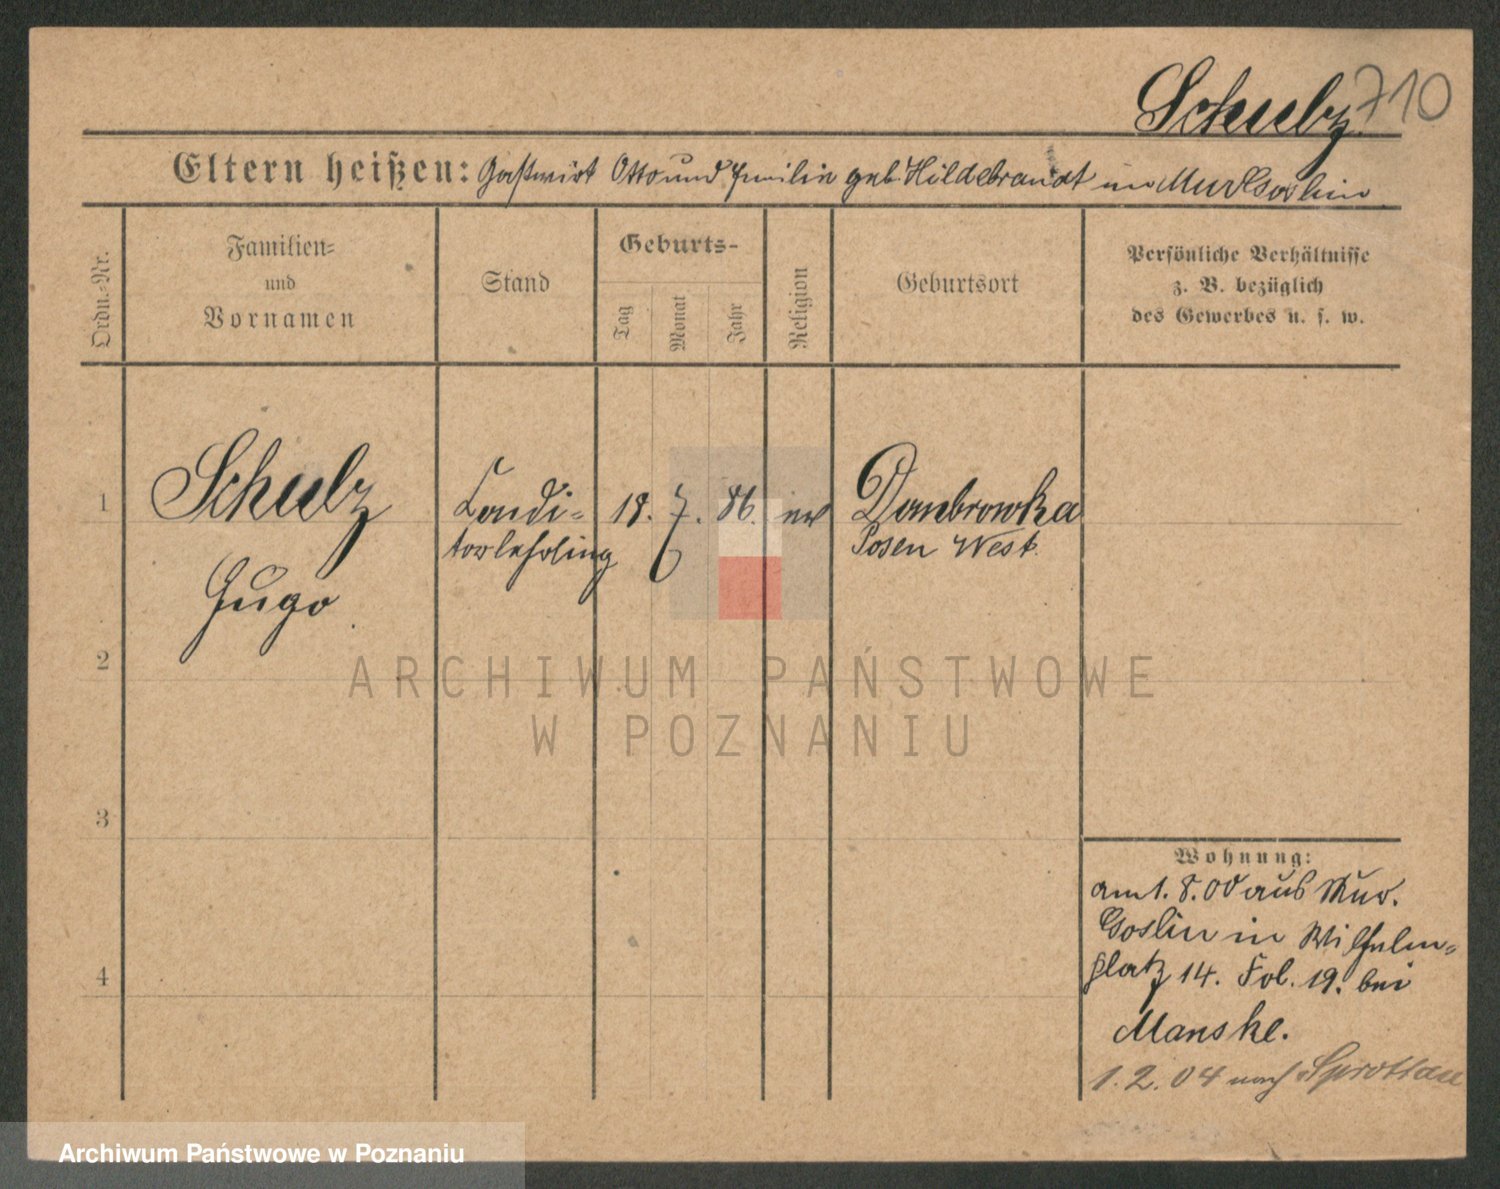 Schulz 710
Eltern heißen: Gastwirt Otto und Emilie geb. Hildebrandt in Mur Goslin
Ordn.-Nr.
Familien-
und
Vornamen
Stand
Geburts-
Tag
Monat
Jahr
Religion
Geburtsort
Persönliche Verhältnisse
z. B. bezüglich
des Gewerbes u. s. w.
1
Schulz
Hugo
Condi-
torlehrling
18. 7. 86. ev
Dombrowka
Posen West.
2
3
4
ARCHIWUM PAŃSTWOWE
W POZNANIU
Wohnung:
am 1. 8. 00 aus Mur.
Goslin in Wilhelm-
platz 14. Fol. 19. bei
Manske.
1. 2. 04 nach Sprottau
Archiwum Państwowe w Poznaniu